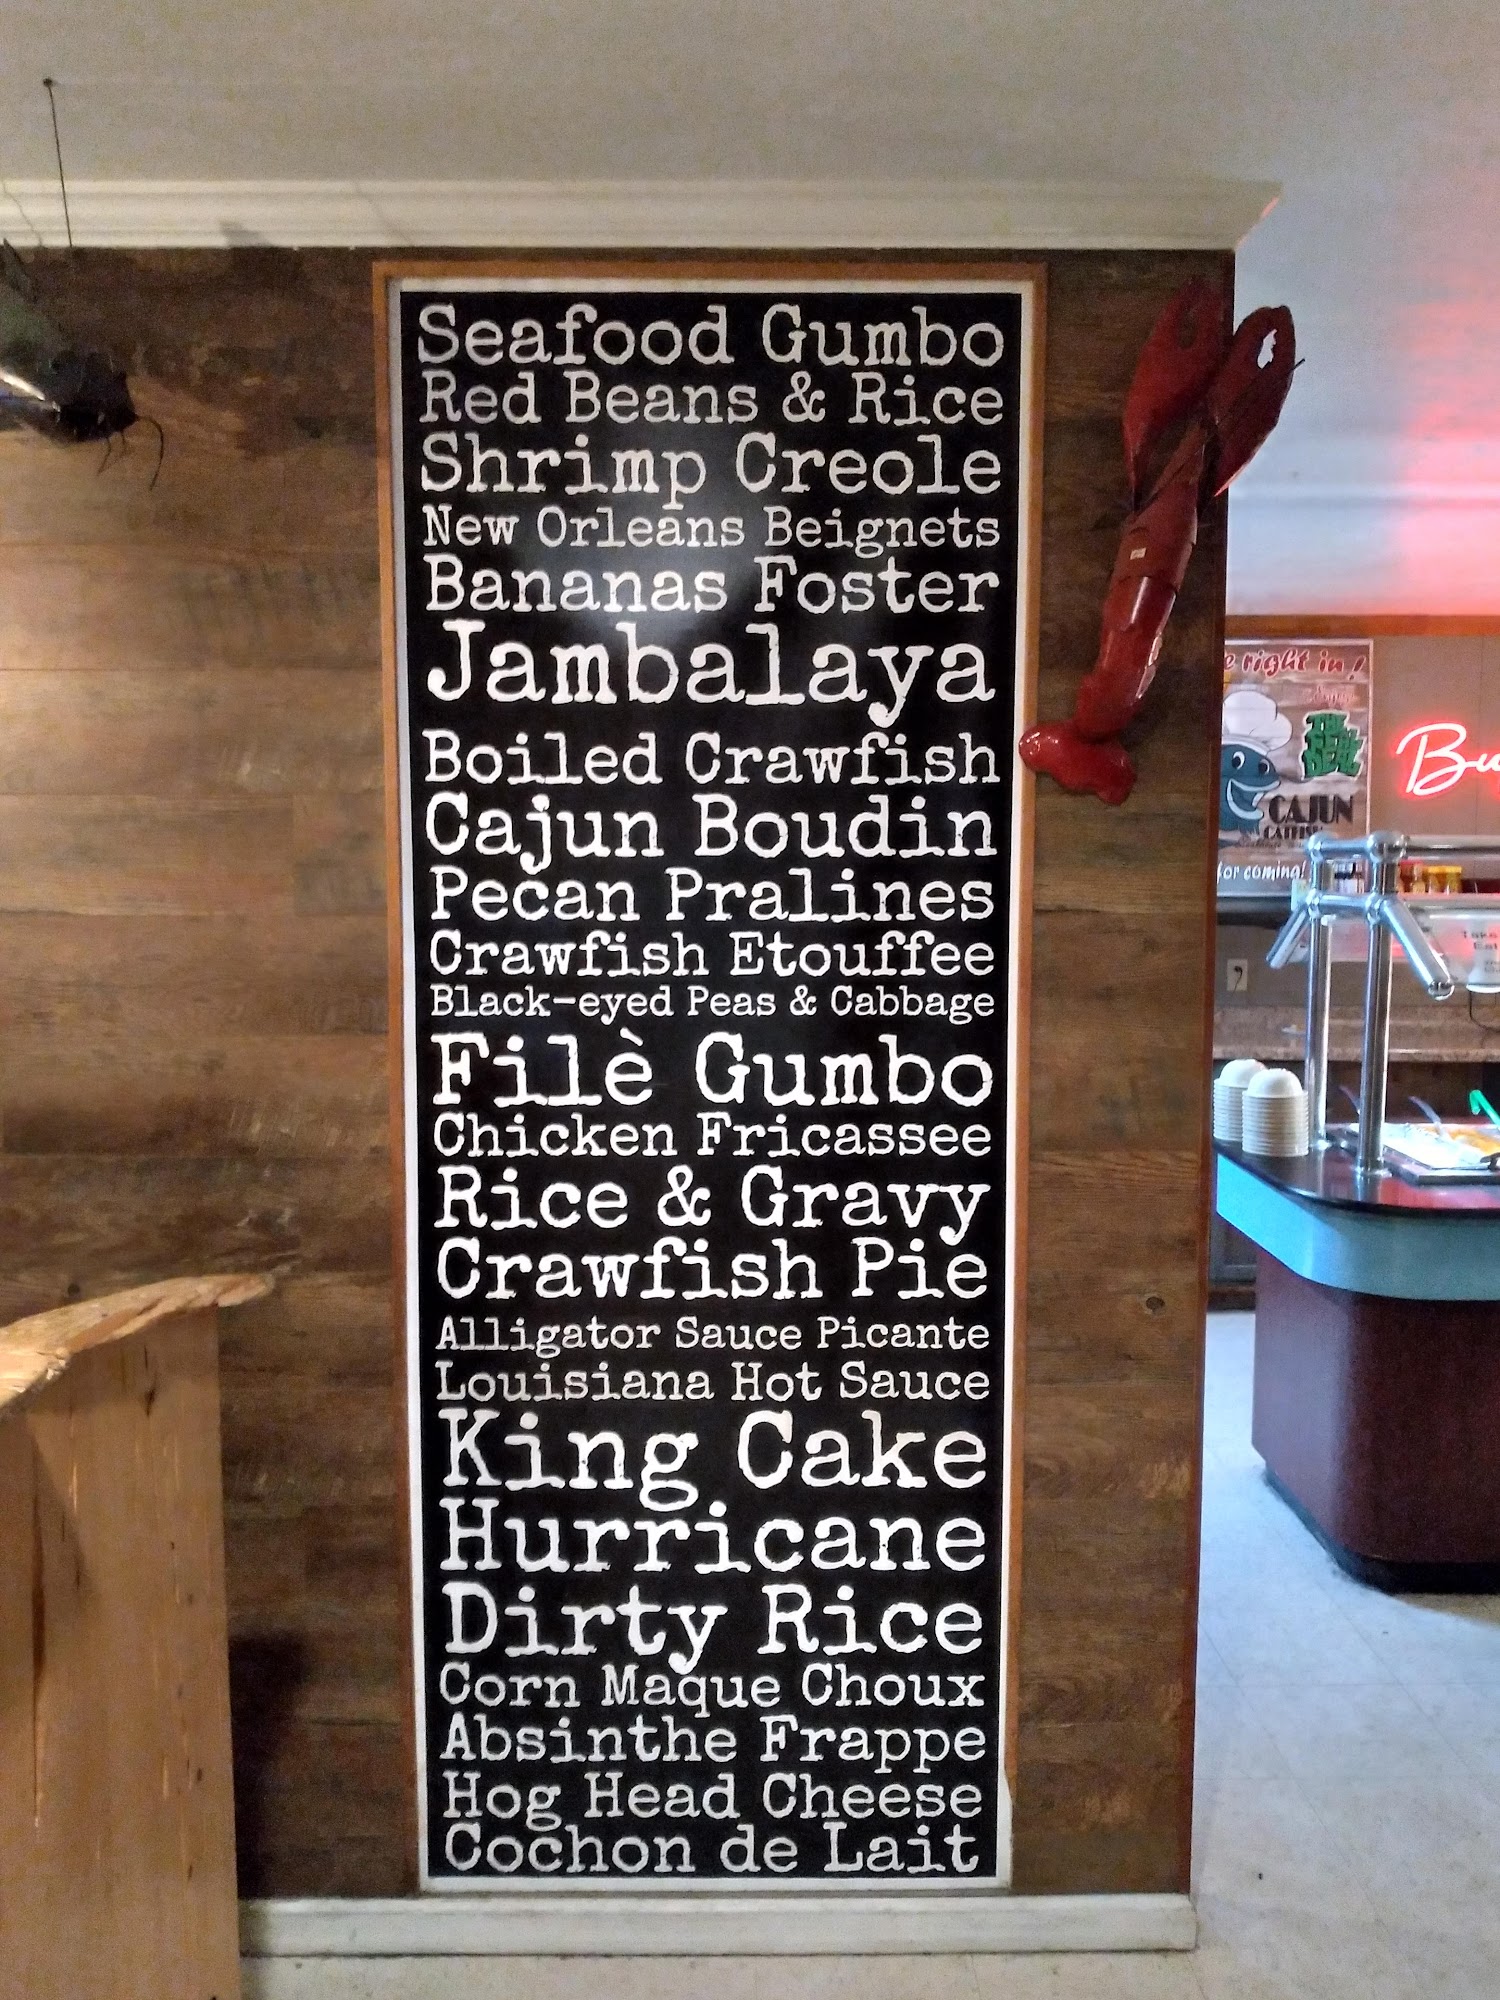 Seafood Gumbo
Red Beans & Rice
Shrimp Creole
New Orleans Beignets
Bananas Foster
Jambalaya
Boiled Crawfish
Cajun Boudin
Pecan Pralines
Crawfish Etouffee
Black-eyed Peas & Cabbage
Filè Gumbo
Chicken Fricassee
Rice & Gravy
Crawfish Pie
Alligator Sauce Picante
Louisiana Hot Sauce
King Cake
Hurricane
Dirty Rice
Corn Maque Choux
Absinthe Frappe
Hog Head Cheese
Cochon de Lait
right in!
THE REAL DEAL
CAJUN
CATFISH
for coming!
Bu
Take